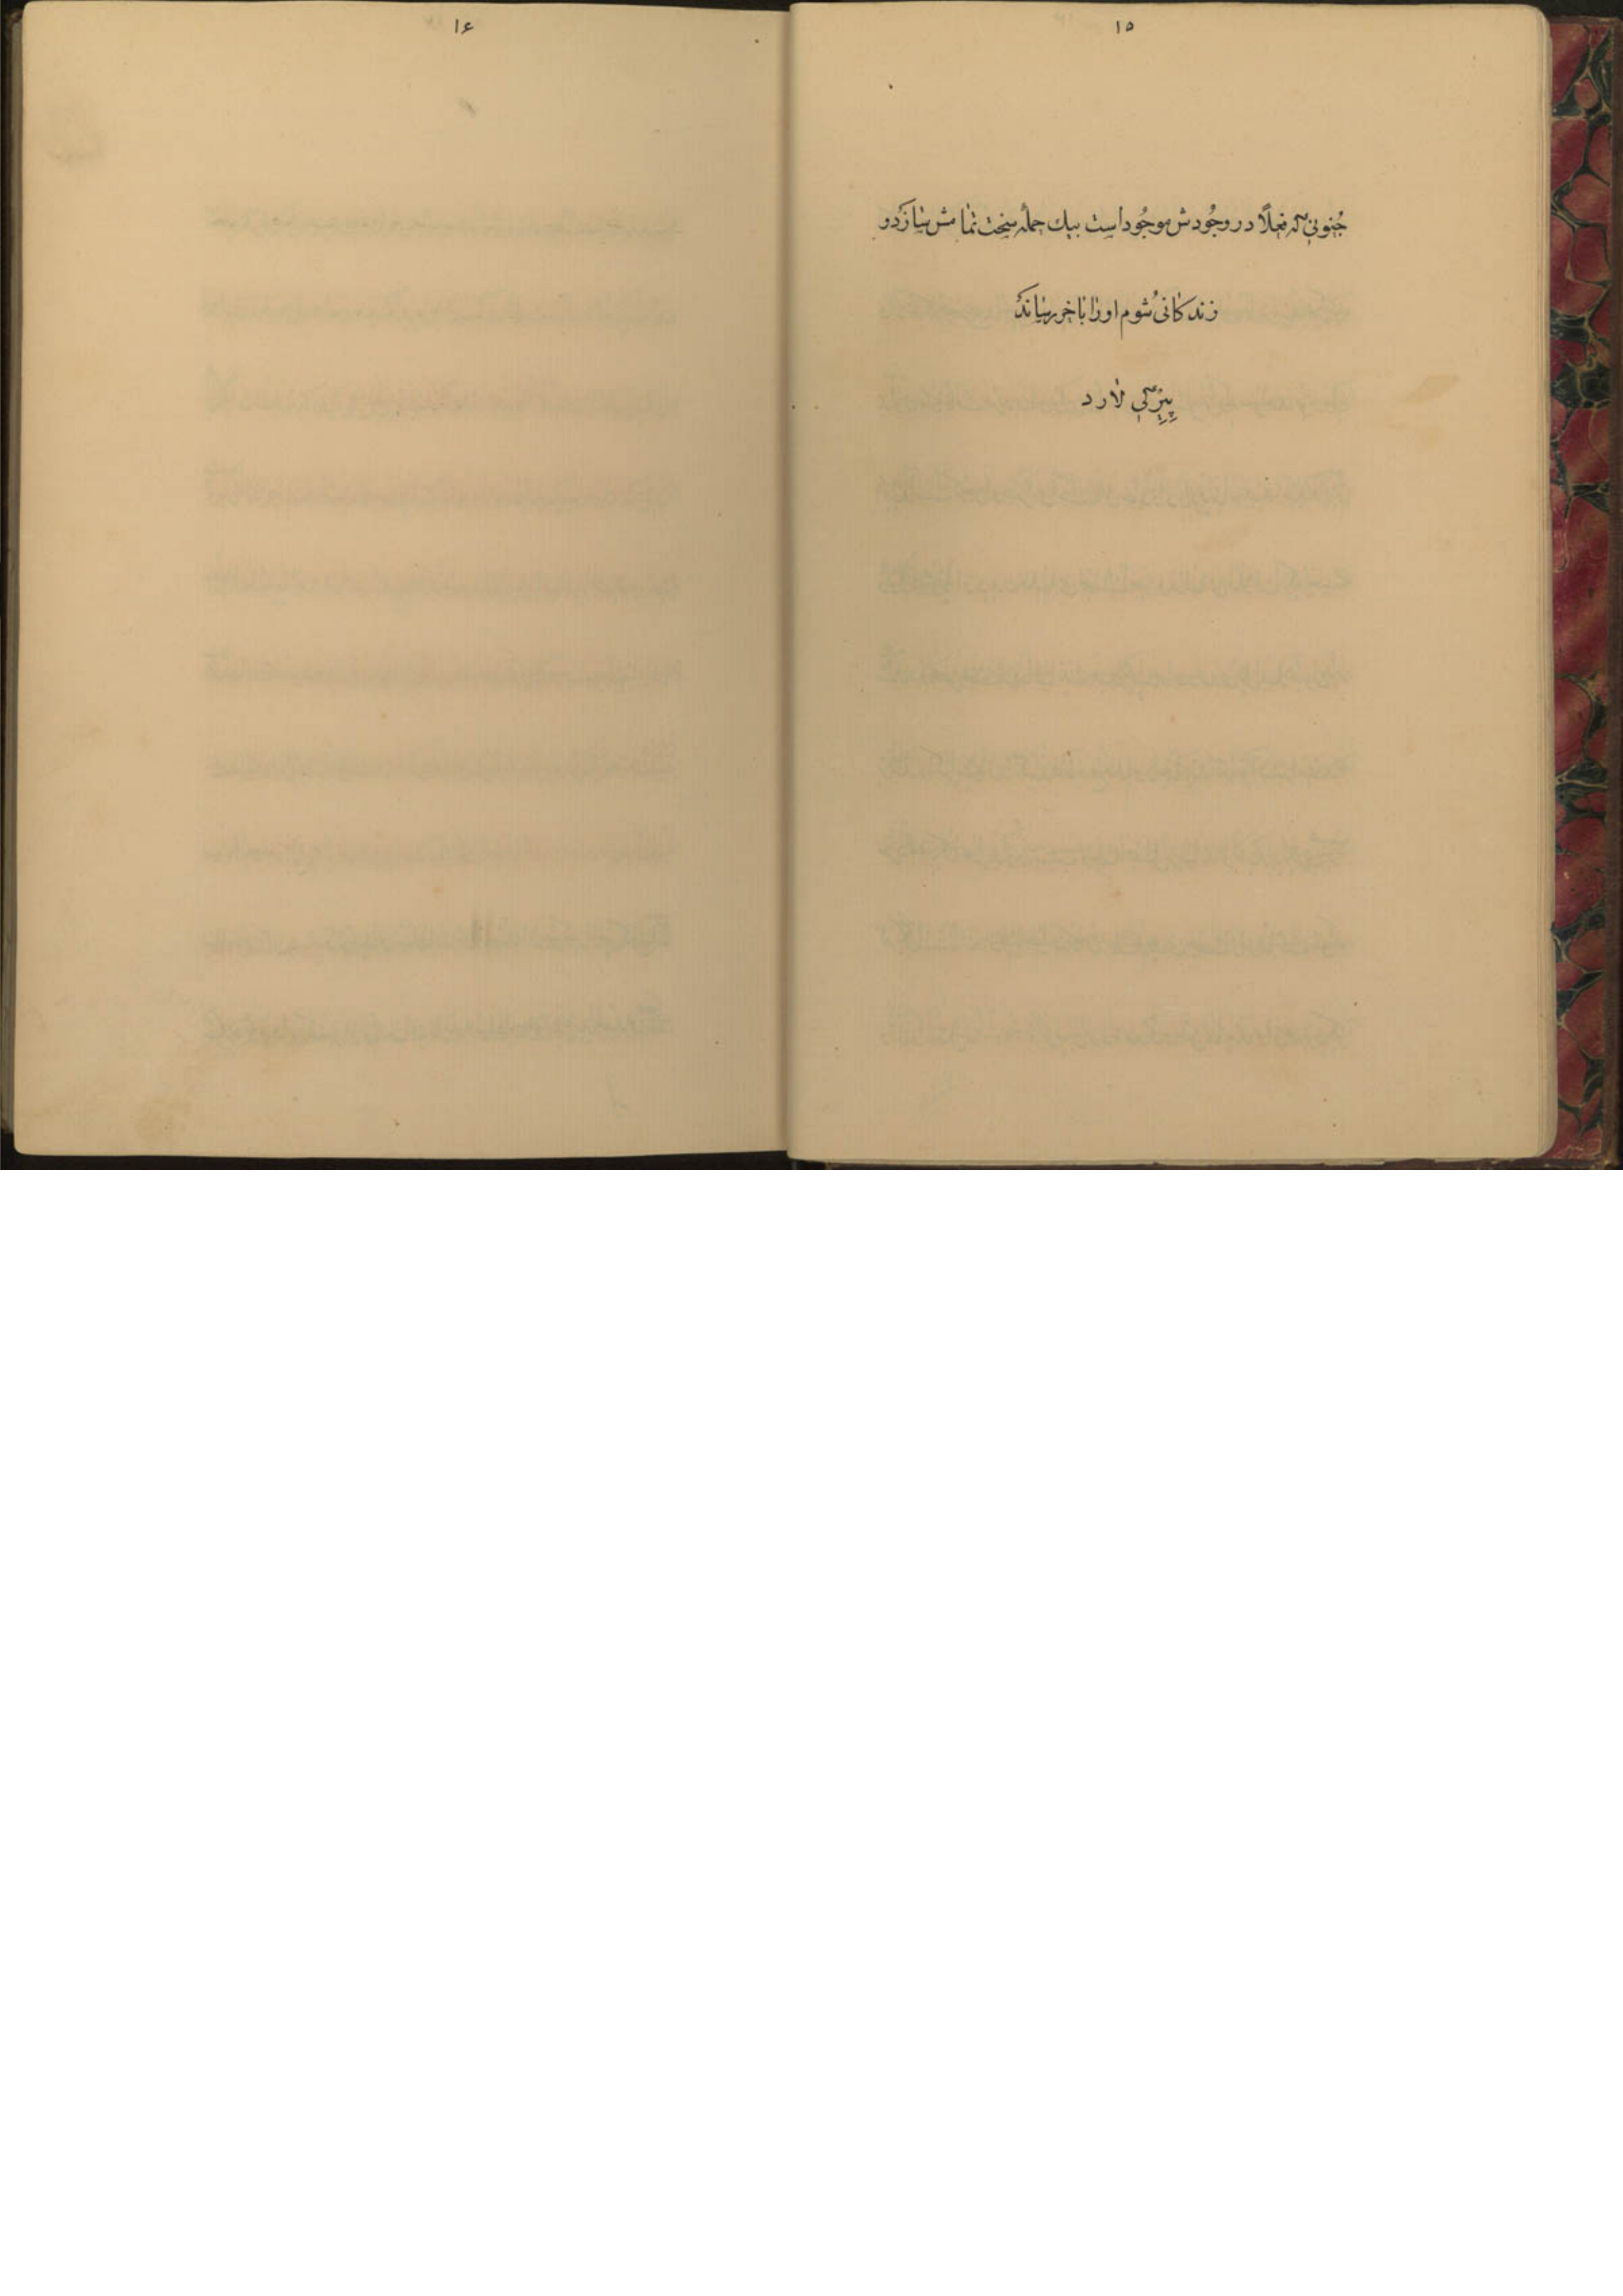 ۱۵
جُنونی که فعلًا در وجُودش موجُود است بیك حمله سخت تمامش سازد و
زندکانی شوم اورا باخر رساند
پیزکی لارد
۱۶